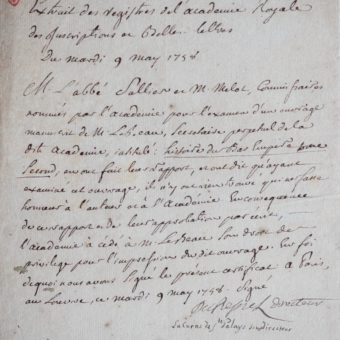 Extrait des registres de l'academie Royale
des Inscriptions et Belles lettres
Du mardi 9 may 1758
M. L'abbé Sallier et M. Melot, Commissaires
nommés par l'academie pour l'examen d'un ouvrage
manuscrit de M. LeBeau, Secretaire perpetuel de la
dite Academie, intitulé: histoire du Bas Empire tome
Second, en ont fait leur rapport, et ont dit qu'ayant
examiné cet ouvrage, il n'y ont rien trouvé qui ne fasse
honneur à l'auteur et à l'Academie En consequence
de ce rapport et de leur approbation par écrit,
l'academie a cédé à M. LeBeau Son droit de
privilege pour l'impression du dit ouvrage. En foi
de quoi nous avons Signé le present certificat à Paris,
au Louvre, ce mardi 9 may 1758 Signé
directeur